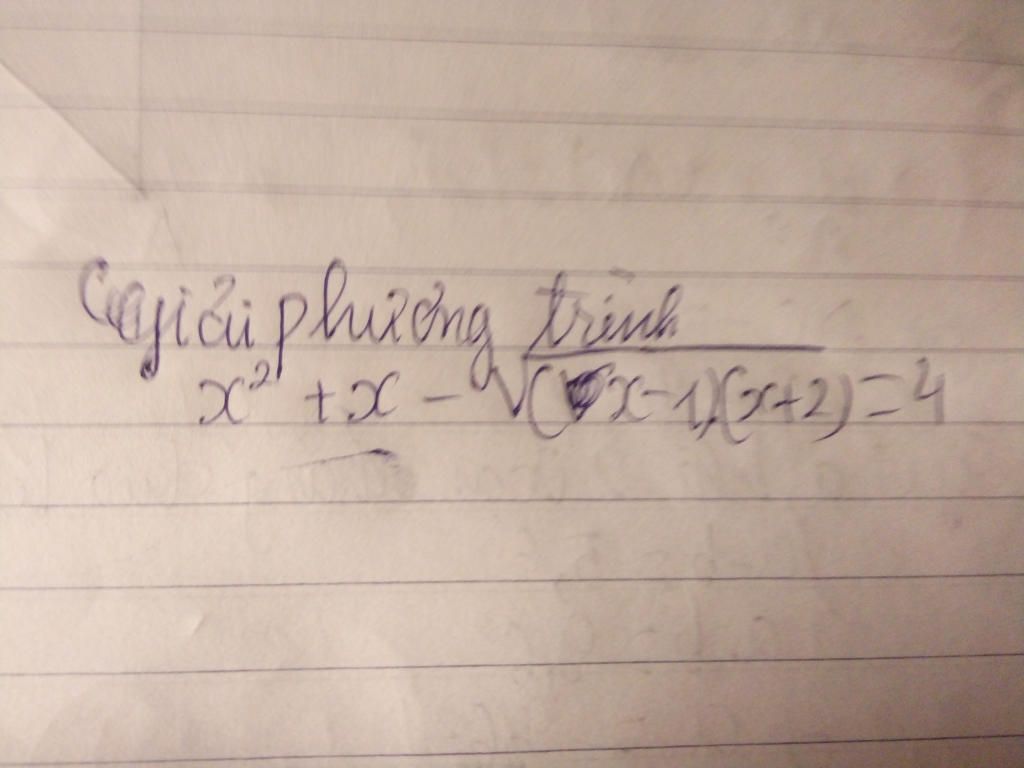 Giải phương trình
x² + x - √(x-1)(x+2) = 4